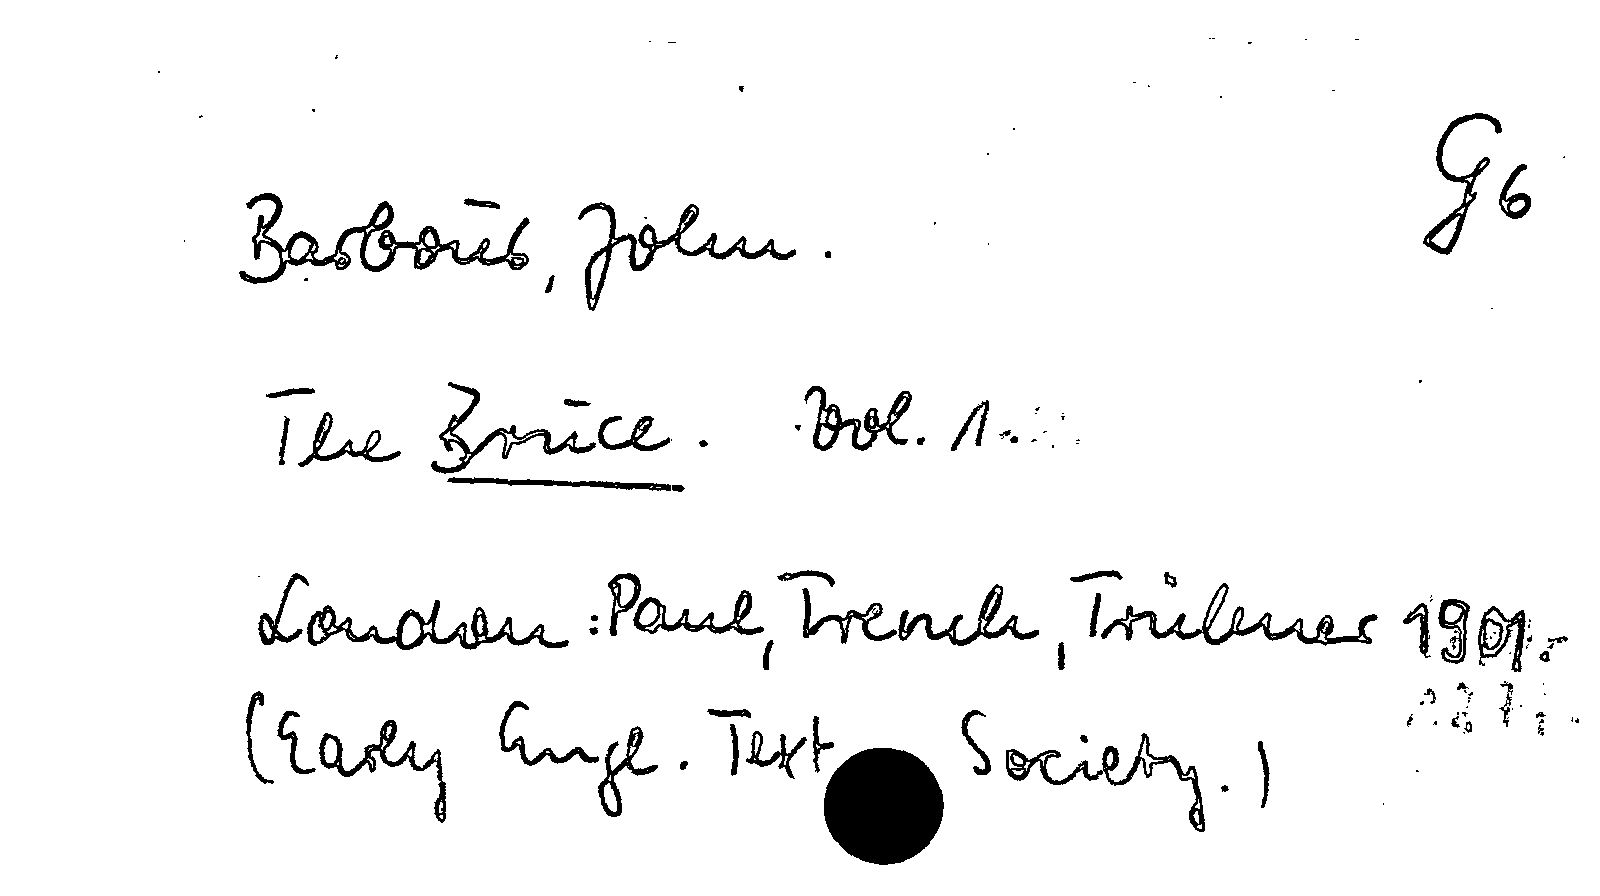 G6
Barbour, John.
The Bruce. Vol. 1.
London: Paul, Trench, Trübner 1901.
(Early Engl. Text Society.)